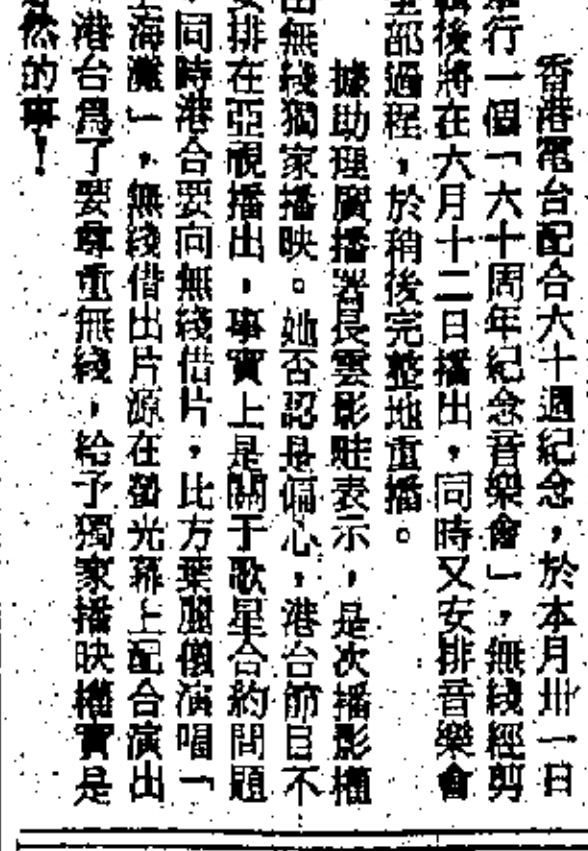 香港電台配合六十週紀念，於本月卅一日
舉行一個「六十周年紀念音樂會」，無綫經剪
輯後將在六月十二日播出，同時又安排音樂會
全部過程，於稍後完整地重播。
據助理廣播署長雲影畦表示，是次播影權
由無綫獨家播映。她否認是偏心，港台節目不
安排在亞視播出，事實上是關于歌星合約問題
，同時港台要向無綫借片，比方葉麗儀演唱「
上海灘」，無綫借出片源在螢光幕上配合演出
，港台爲了要尊重無綫，給予獨家播映權實是
然的事！